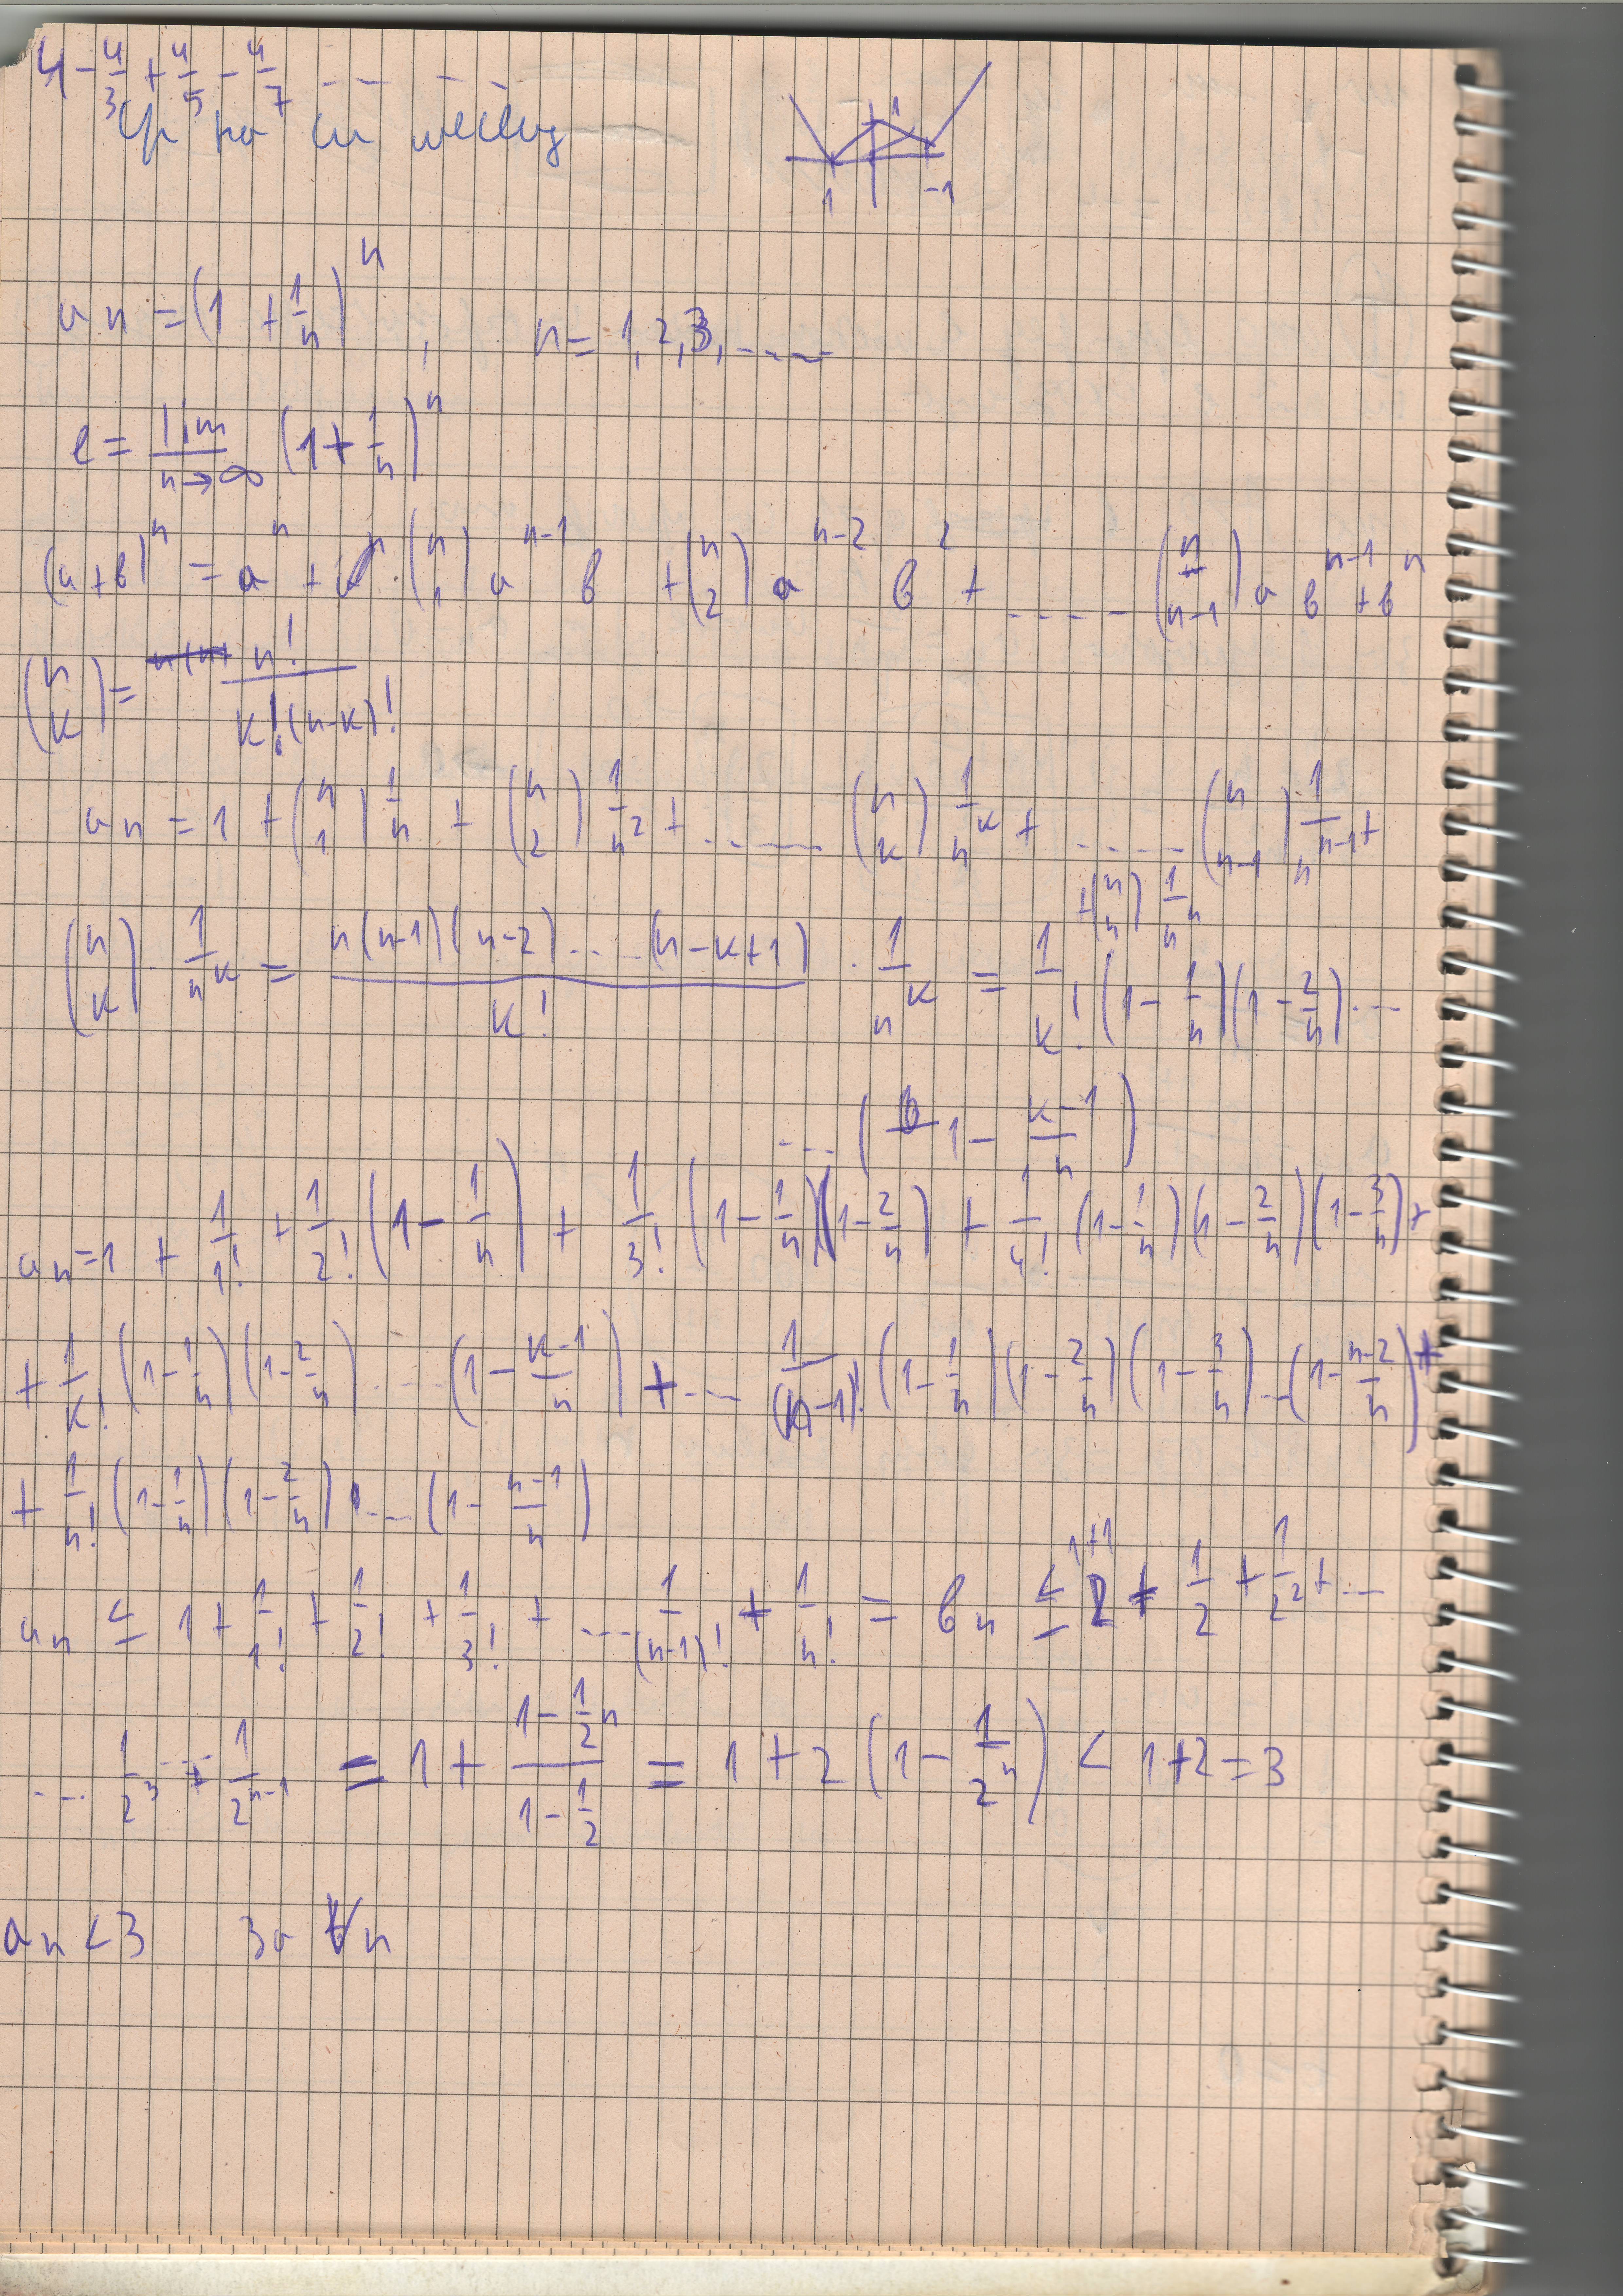 4 - 4/3 + 4/5 - 4/7 -- -- - -
на
1
1 -1
aₙ = (1 + 1/n)ⁿ , n = 1, 2, 3, .....
e = lim n→∞ (1 + 1/n)ⁿ
(a+в)ⁿ = aⁿ + (n 1) aⁿ⁻¹ в + (n 2) aⁿ⁻² в² + ..... (n n-1) a вⁿ⁻¹ + вⁿ
(n k) = n! / k!(n-k)!
aₙ = 1 + (n 1) 1/n + (n 2) 1/n² + ..... (n k) 1/nᵏ + ..... (n n-1) 1/nⁿ⁻¹ +
+ (n n) 1/nⁿ
(n k) · 1/nᵏ = n(n-1)(n-2)....(n-k+1) / k! · 1/nᵏ = 1/k! (1 - 1/n)(1 - 2/n)...
... (1 - k-1/n)
aₙ = 1 + 1/1! + 1/2! (1 - 1/n) + 1/3! (1 - 1/n)(1 - 2/n) + 1/4! (1 - 1/n)(1 - 2/n)(1 - 3/n) +
+ 1/k! (1 - 1/n)(1 - 2/n) .... (1 - k-1/n) + ... 1/(n-1)! (1 - 1/n)(1 - 2/n)(1 - 3/n)...(1 - n-2/n) +
+ 1/n! (1 - 1/n)(1 - 2/n) .... (1 - n-1/n)
aₙ ≤ 1 + 1/1! + 1/2! + 1/3! + .... 1/(n-1)! + 1/n! = вₙ ≤ 1+1 2 + 1/2 + 1/2² + ...
... 1/2³ ... + 1/2ⁿ⁻¹ = 1 + (1 - 1/2ⁿ) / (1 - 1/2) = 1 + 2 (1 - 1/2ⁿ) < 1+2 = 3
aₙ < 3 за ∀n